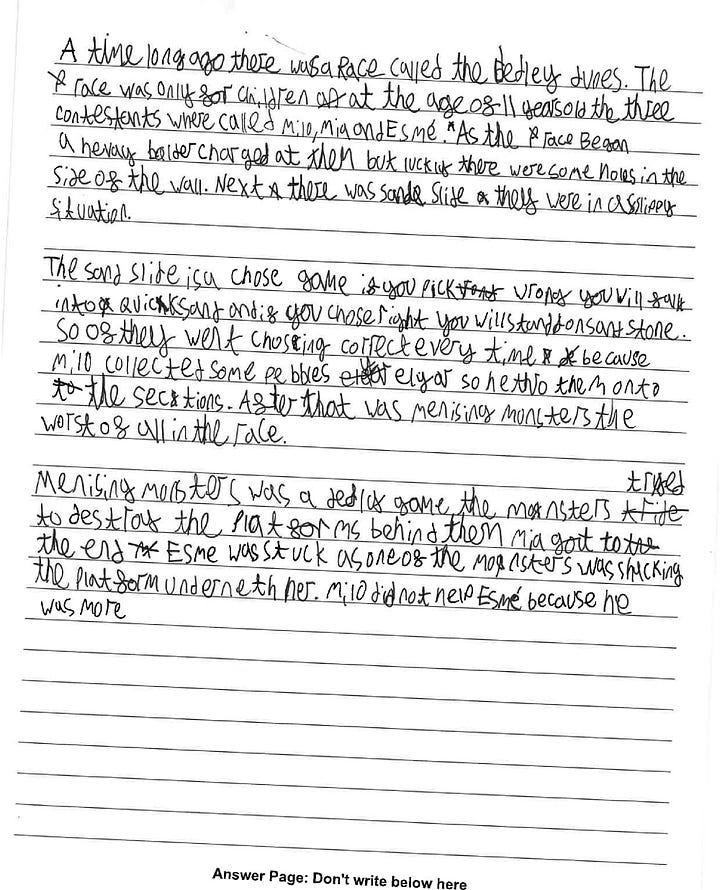 A time long ago there was a Race called the Dedley dunes. The
race was only for children at the age of 11 years old the three
contestants where called Milo, Mia and Esmé. As the race Began
a hevay bolder charged at them but luckily there were some holes in the
side of the wall. Next there was sand slide they were in a slippey
situation.
The sand slide is a chose game if you pick wrong you will sulk
into a quicksand and if you chose right you will stand on sant stone.
So of they went chosing correct every time because
Milo collected some pebbles elyar so he thro them onto
the sections. After that was menising monsters the
worst of all in the race.
tryed
Menising monsters was a dedley game, the monsters
to destroy the platforms behind them Mia got to
the end Esme was stuck as one of the monsters was shacking
the platform underneth her. Milo did not help Esmé because he
was more
Answer Page: Don't write below here